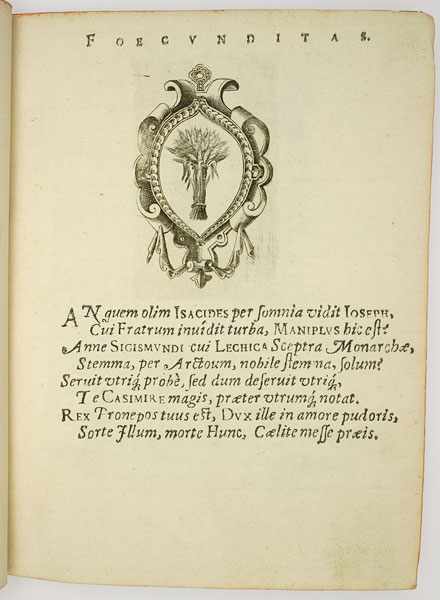 FOECVNDITAS.
AN quem olim ISACIDES per somnia vidit IOSEPH,
Cui Fratrum inuidit turba, MANIPLVS hic est?
Anne SIGISMVNDI cui LECHICA Sceptra Monarchæ,
Stemma, per Arctoum, nobile stemma, solum?
Seruit vtriq́; probè, sed dum deseruit vtriq́;
Te CASIMIRE magis, præter vtrumq́; notat.
REX Pronepos tuus est, DVX ille in amore pudoris,
Sorte Illum, morte Hunc, Cælite messe præis.